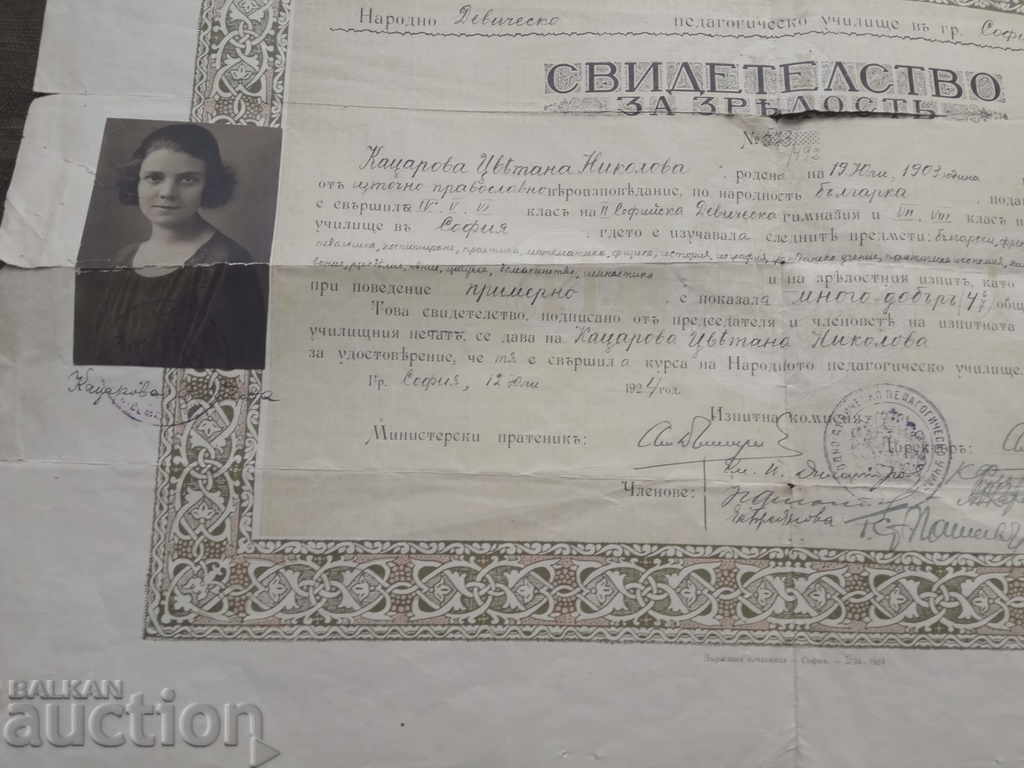 Народно Девическо педагогическо училище въ гр. Софи
СВИДЕТЕЛСТВО
ЗА ЗРѢЛОСТЬ
№ 373
492
Кацарова Цвѣтана Николова, родена на 19 Юли, 1903 година
отъ източно православно вѣроизповѣдание, по народность българка, пода
е свършила IV, V, VI класъ на II Софийска Девическа гимназия и VII, VIII класъ н
училище въ София, гдето е изучавала следнитѣ предмети: български, фре
практика, математика, физика, история, география,
рѫкодѣлие, пѣние, цигулка, домакинство, гимнастика и на зрѣлостния изпитъ, като
при поведение примерно, е показала много добъръ (4
Това свидетелство, подписано отъ председателя и членоветѣ на изпитната
училищния печатъ, се дава на Кацарова Цвѣтана Николова
за удостовѣрение, че тя е свършила курса на Народното педагогическо училище.
Гр. София, 12 Юли 1924 год.
Кацарова
Изпитна комисия:
Министерски пратеникъ: Директоръ:
Членове:
Държавна печатница – София. –
BALKAN
auction